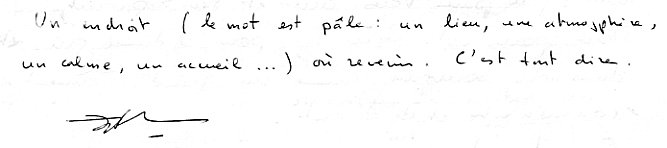 Un endroit (le mot est pâle : un lieu, une atmosphère,
un calme, un accueil ...) où revenir. C'est tout dire.